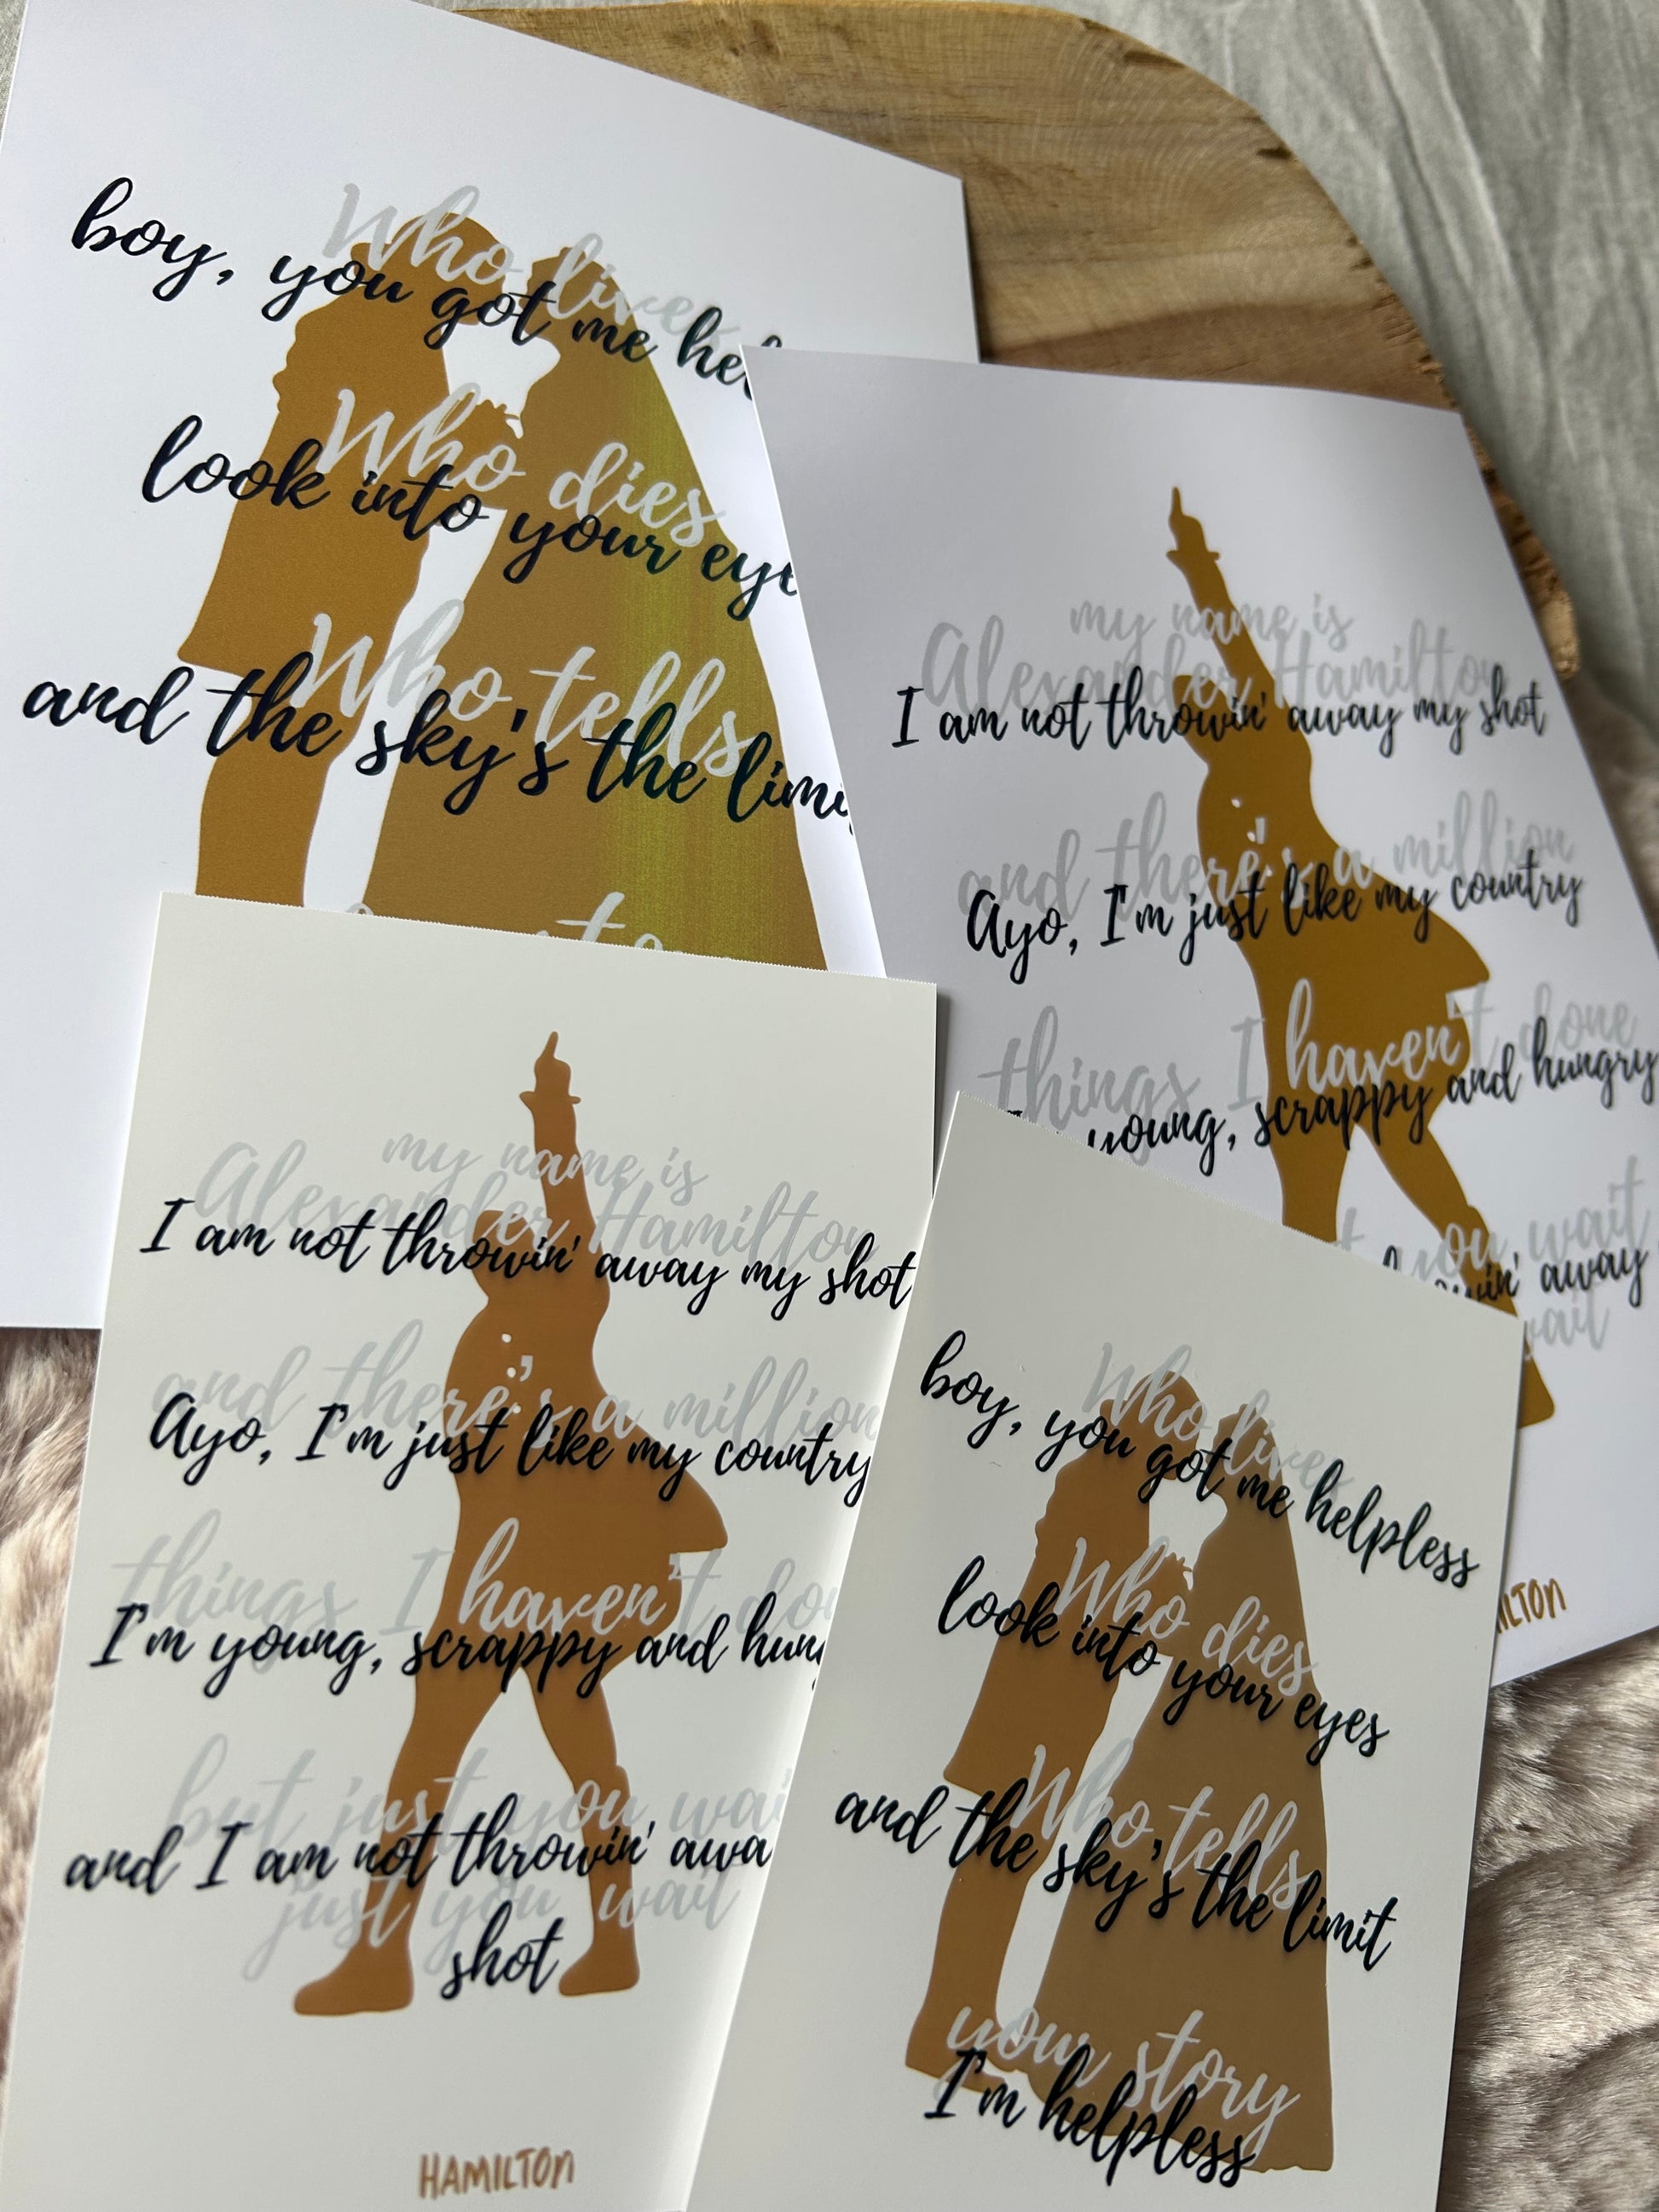 Who lives
boy, you got me
Who dies
look into your
Who tells
and the sky's the
my name is
Alexander Hamilton
I am not throwin' away my shot
and there's a million
Ayo, I'm just like my country
things I haven't done
young, scrappy and hungry
you wait
away
wait
my name is
Alexander Hamilton
I am not throwin' away my shot
and there's a million
Ayo, I'm just like my country
things I haven't
I'm young, scrappy and
but just you
and I am not throwin'
just you wait
shot
HAMILTON
Who lives
boy, you got me helpless
Who dies
look into your eyes
Who tells
and the sky's the limit
your story
I'm helpless